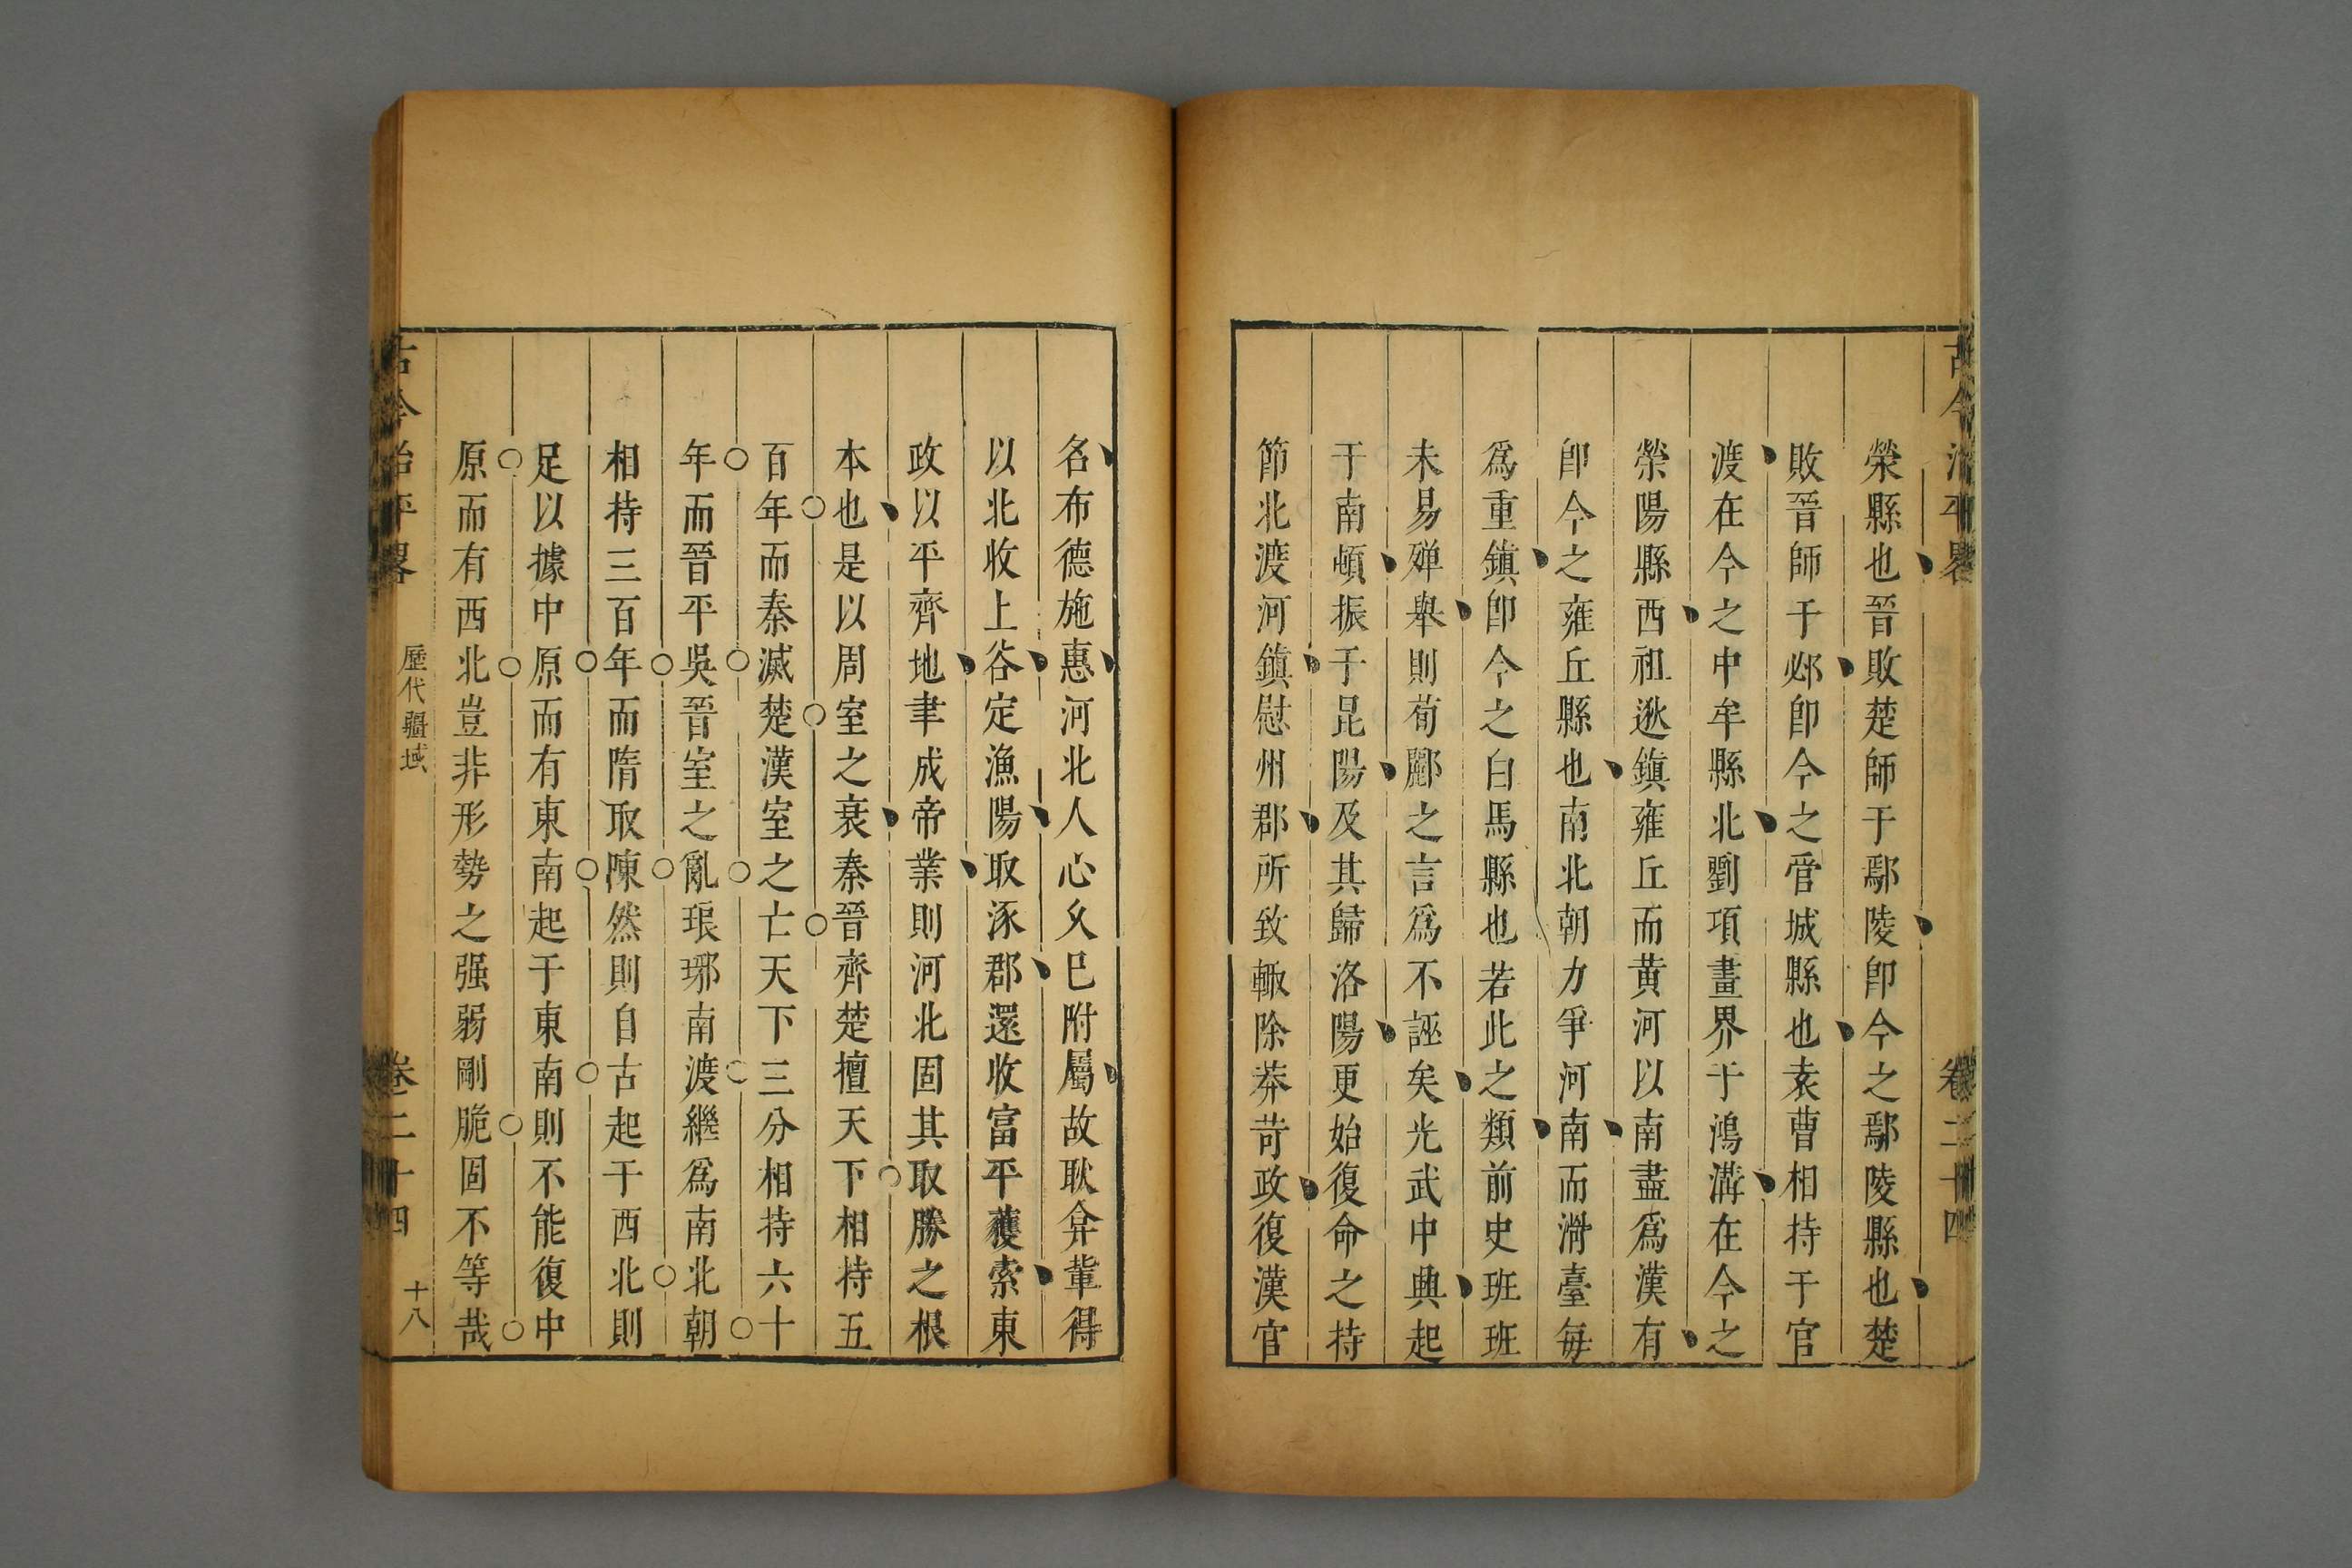 古今治平畧
卷二十四
滎縣也晉敗楚師于鄢陵即今之鄢陵縣也楚
敗晉師于邲即今之管城縣也袁曹相持于官
渡在今之中牟縣北劉項畫界于鴻溝在今之
滎陽縣西祖逖鎮雍丘而黄河以南盡爲漢有
即今之雍丘縣也南北朝力爭河南而滑臺每
爲重鎮即今之白馬縣也若此之類前史班班
未易殫舉則荀酈之言爲不誣矣光武中興起
于南頓振于昆陽及其歸洛陽更始復命之持
節北渡河鎮慰州郡所致輙除莽苛政復漢官
名布德施惠河北人心久巳附屬故耿弇輩得
以北收上谷定漁陽取涿郡還收富平獲索東
政以平齊地聿成帝業則河北固其取勝之根
本也是以周室之衰秦晉齊楚擅天下相持五
百年而秦滅楚漢室之亡天下三分相持六十
年而晉平吳晉室之亂琅琊南渡繼爲南北朝
相持三百年而隋取陳然則自古起于西北則
足以據中原而有東南起于東南則不能復中
原而有西北豈非形勢之强弱剛脆固不等哉
古今治平畧
歷代疆域
卷二十四
十八